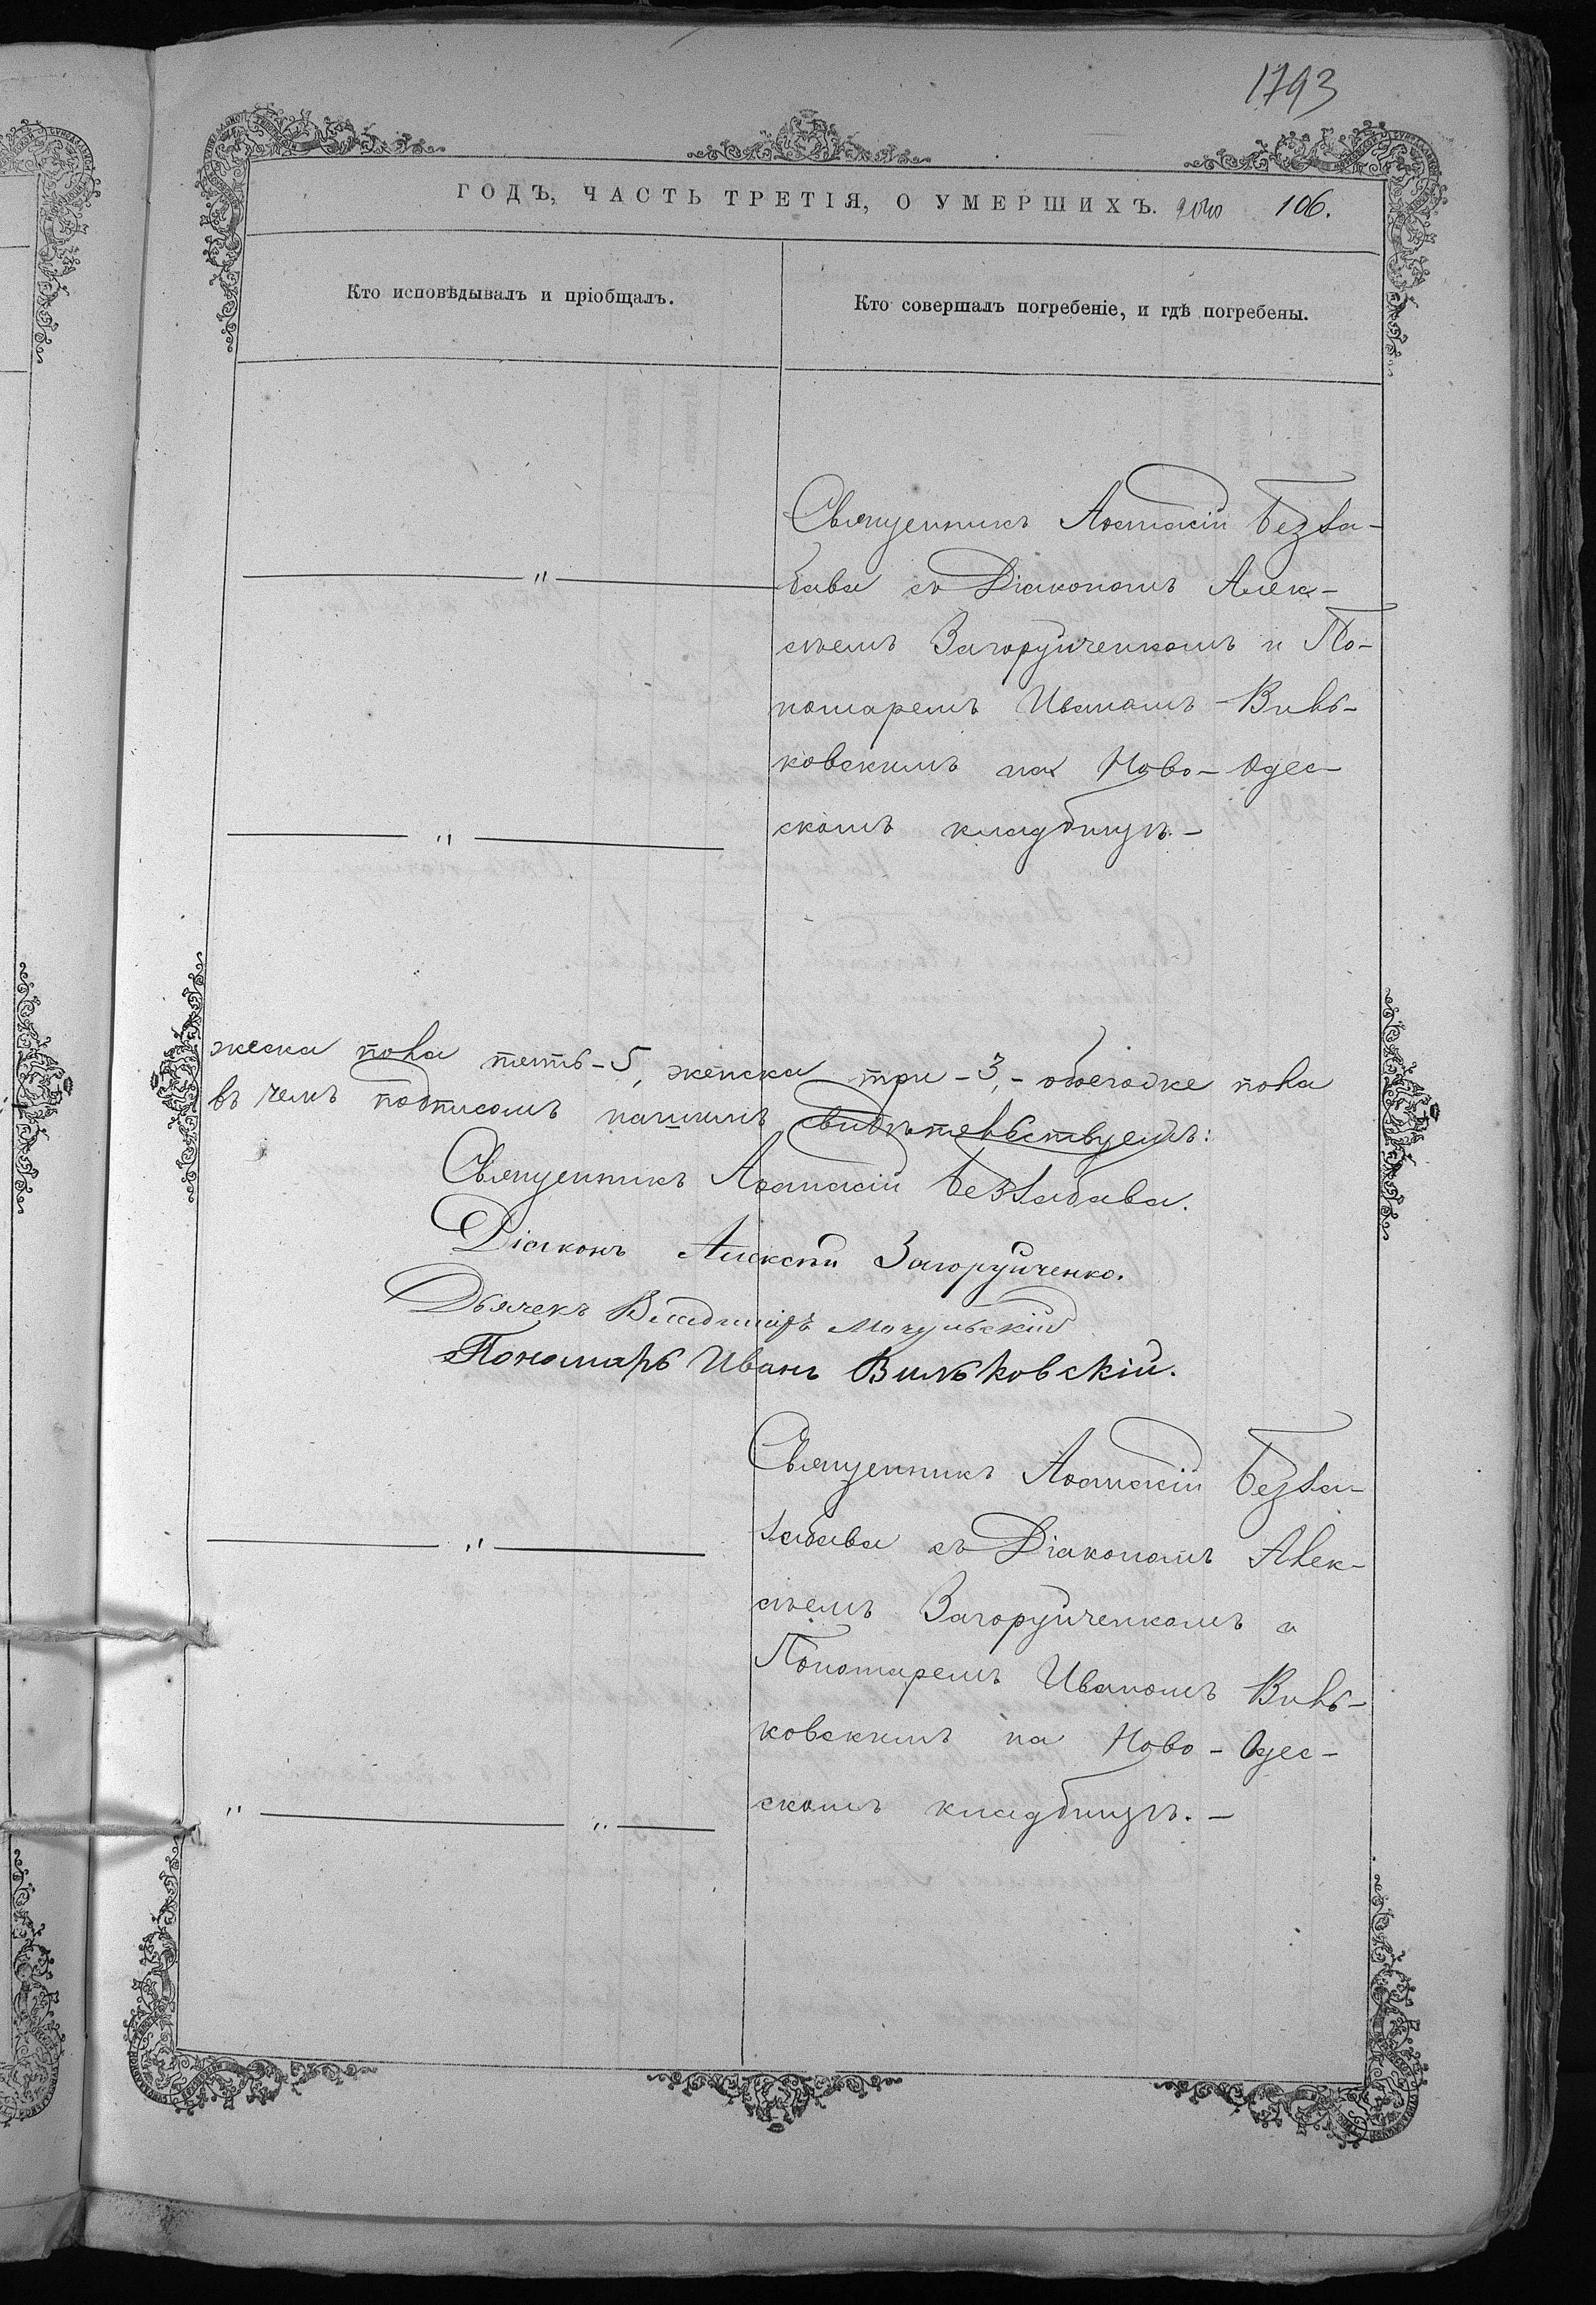 1793
ГОДЪ, ЧАСТЬ ТРЕТІЯ, О УМЕРШИХЪ. 106.
Кто исповѣдывалъ и пріобщалъ.
Кто совершалъ погребеніе, и гдѣ погребены.
Священникъ Аѳанасій Безза-
бава съ Діакономъ Алек-
сѣемъ Загоруйченкомъ и По-
номаремъ Иваномъ Виль-
ковскимъ на Ново-Одес-
скомъ кладбищѣ.-
жеска пола пять-5, женска три-3,- обоегодке пола
въ чемъ подписомъ нашимъ свидѣтельствуемъ:
Священникъ Аѳанасій Беззабава.
Діаконъ Алексѣй Загоруйченко.
Дьячекъ Владиміръ Мочульскій
Пономарь Иванъ Вильковскій.
Священникъ Аѳанасій Безза-
забава съ Діакономъ Алек-
сѣемъ Загоруйченкомъ и
Пономаремъ Иваномъ Виль-
ковскимъ на Ново-Одес-
скомъ кладбищѣ.-